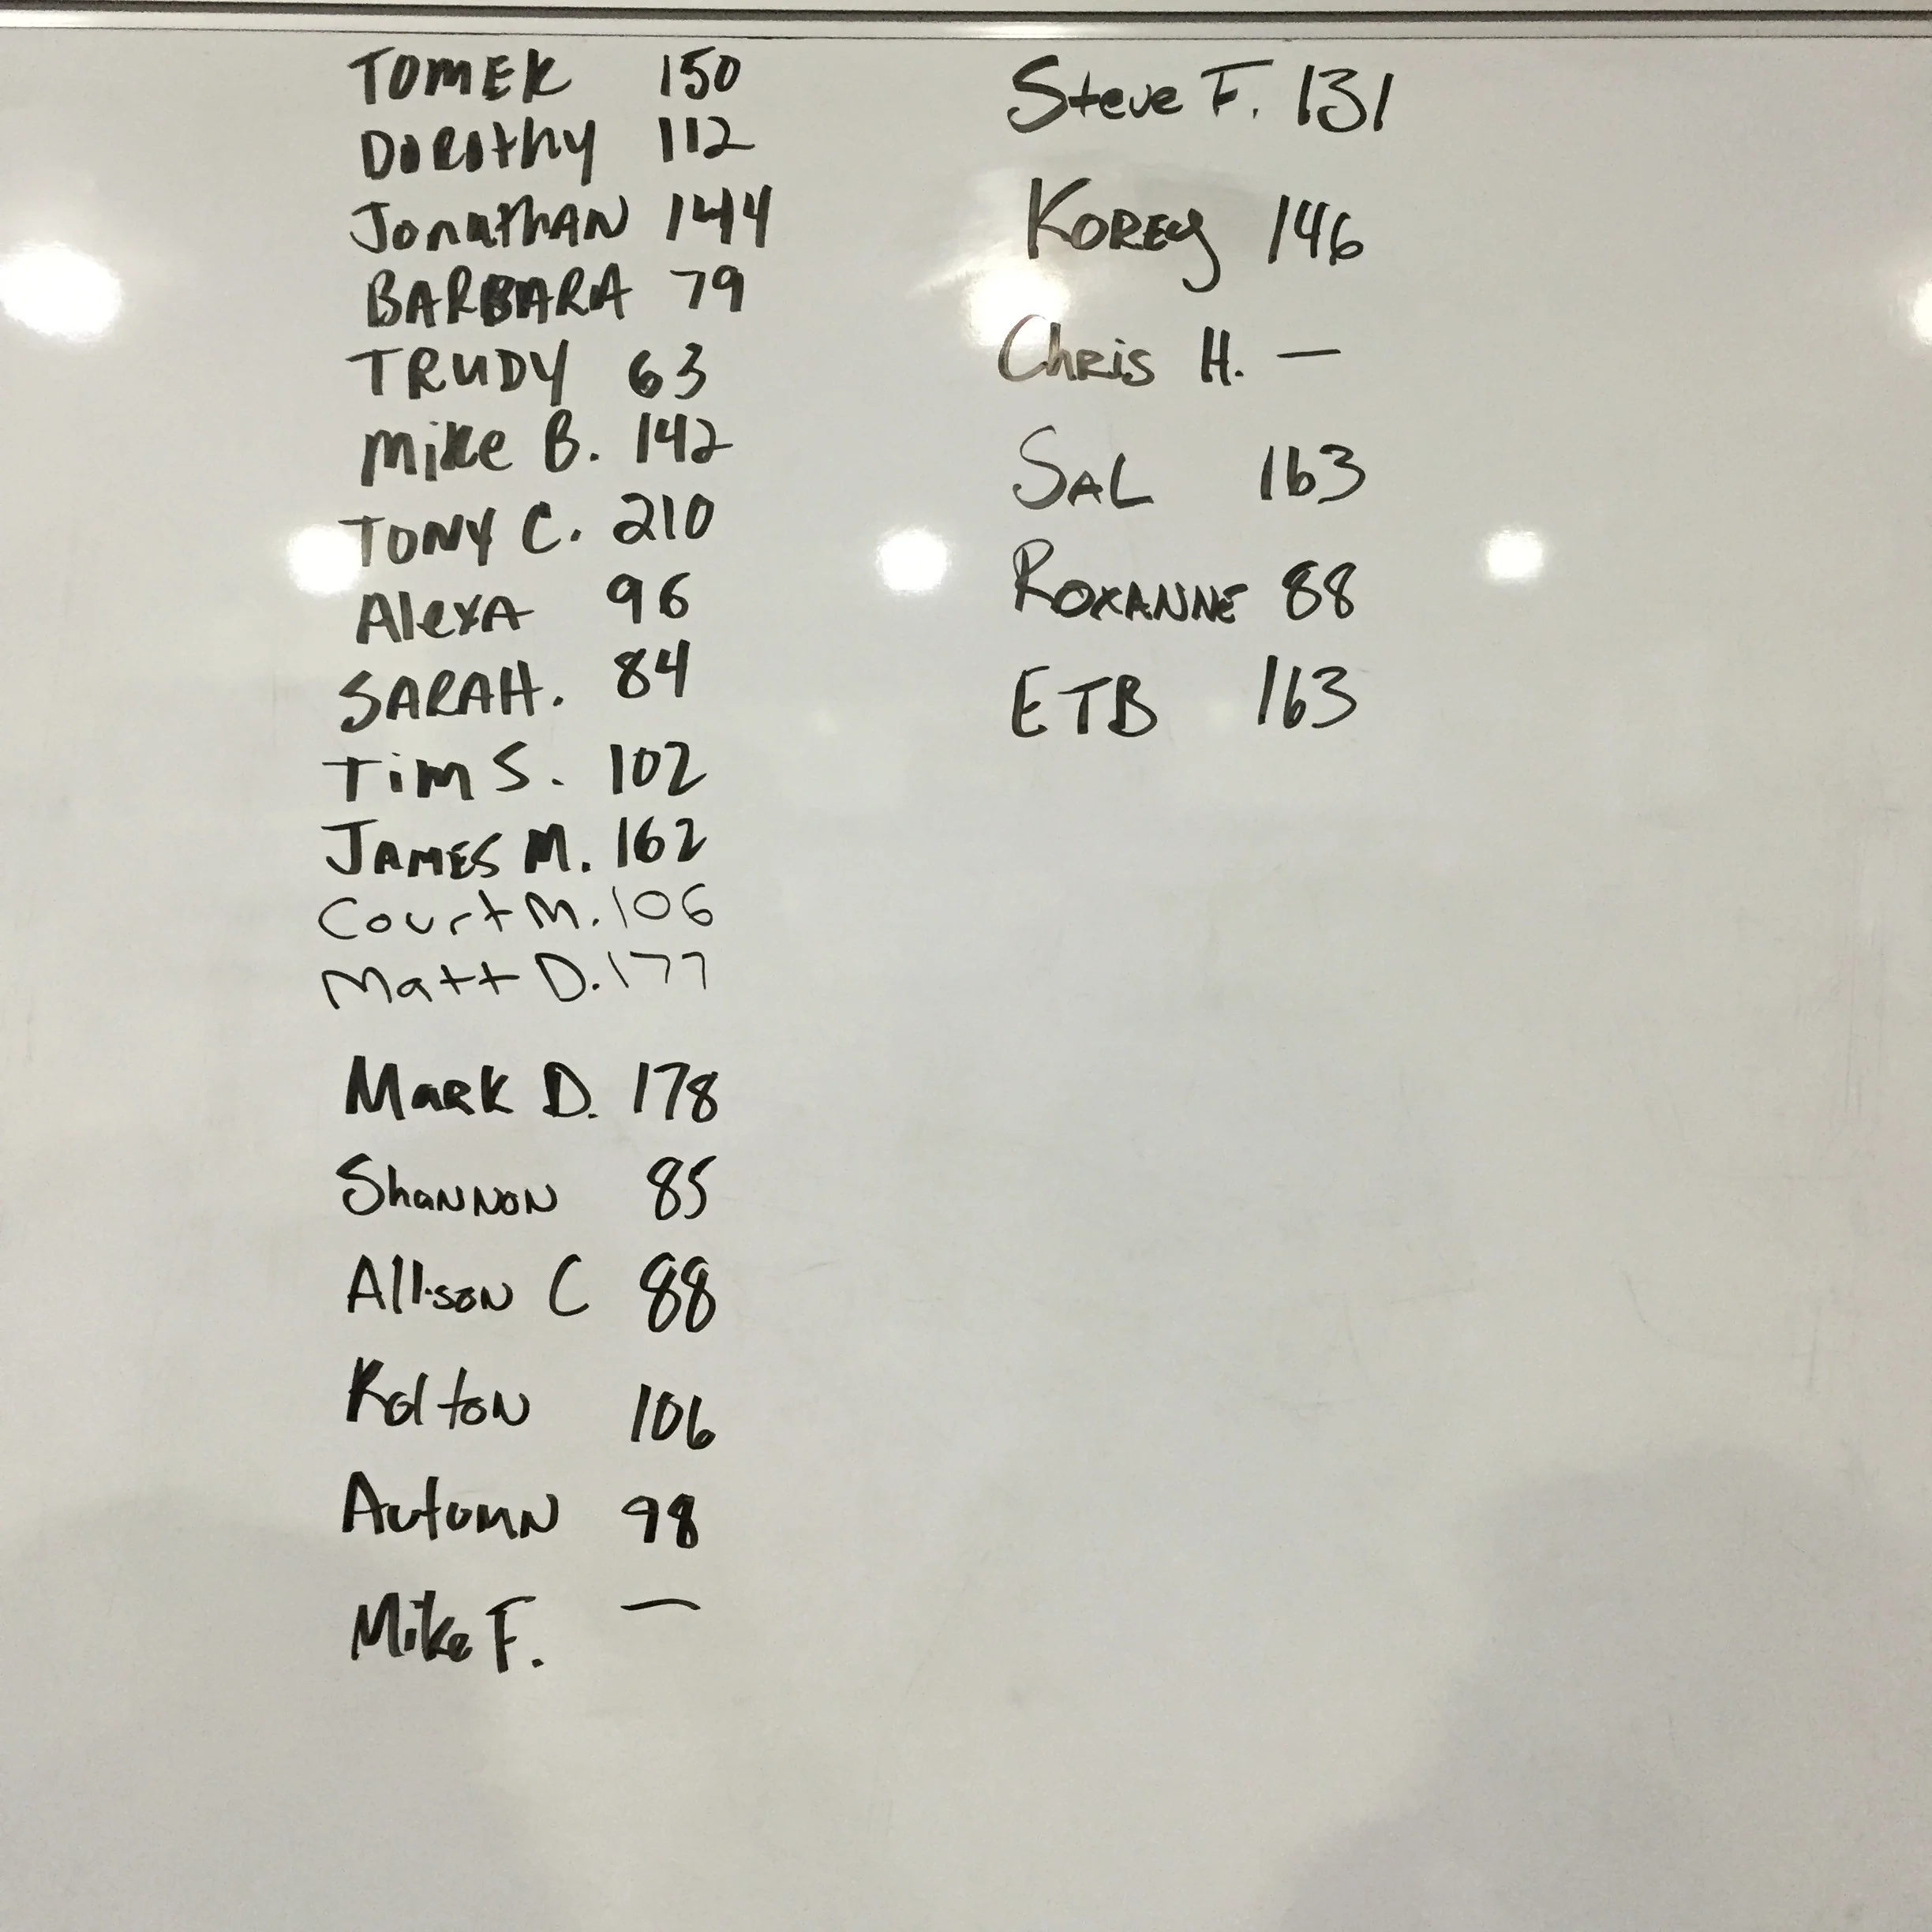 TOMEK 150
Dorothy 112
Jonathan 144
BARBARA 79
TRUDY 63
Mike B. 142
TONY C. 210
AlexA 96
SARAH. 84
Tim S. 102
JAMES M. 162
Court M. 106
Matt D. 177
Mark D. 178
Shannon 85
Allison C 88
Kolton 106
Autumn 98
Mike F. —
Steve F. 131
Korey 146
Chris H. —
SAL 163
ROXANNE 88
ETB 163